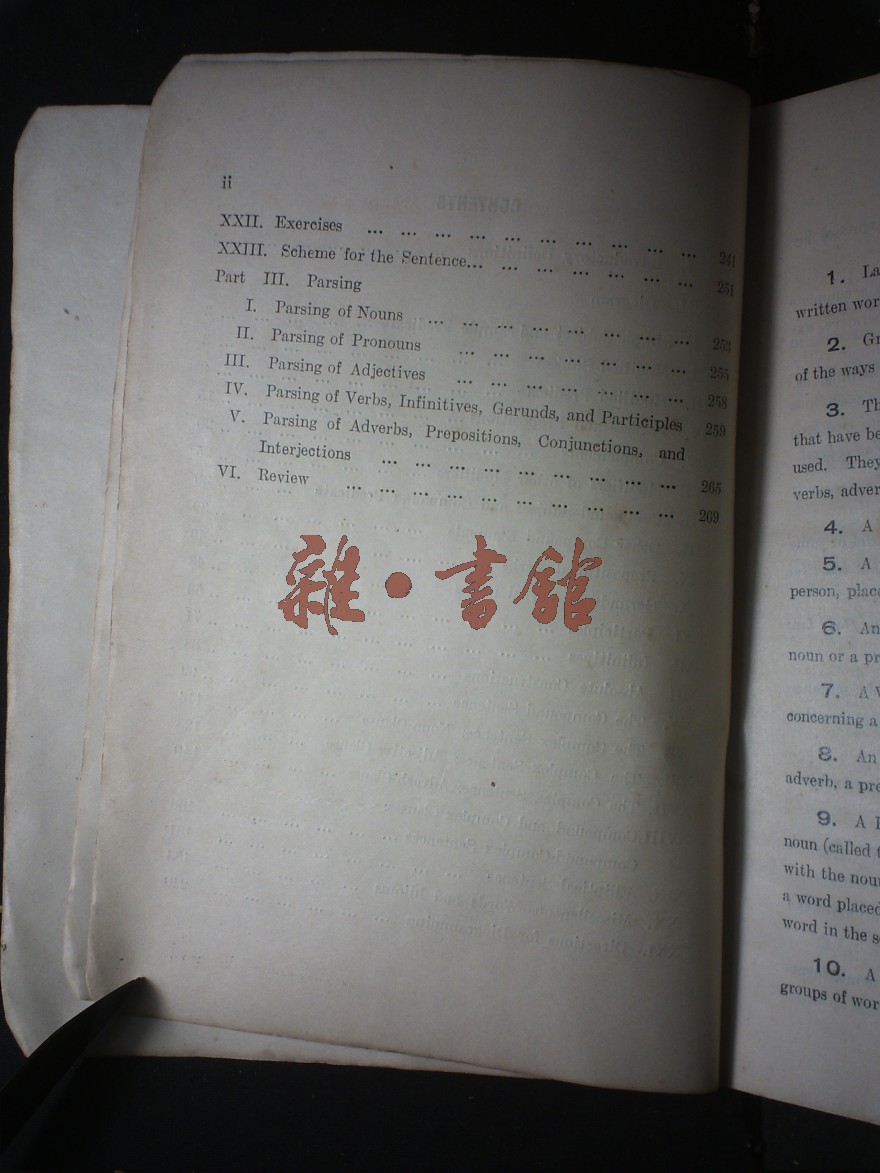 ii
XXII. Exercises ... ... ... ... ... ... ... ... ... ... 241
XXIII. Scheme for the Sentence... ... ... ... ... ... ... 251
Part III. Parsing
I. Parsing of Nouns ... ... ... ... ... ... ... ... 253
II. Parsing of Pronouns ... ... ... ... ... ... ... 255
III. Parsing of Adjectives ... ... ... ... ... ... ... 258
IV. Parsing of Verbs, Infinitives, Gerunds, and Participles 259
V. Parsing of Adverbs, Prepositions, Conjunctions, and
Interjections ... ... ... ... ... ... ... ... ... 265
VI. Review ... ... ... ... ... ... ... ... ... ... 269
雜·書館
1. La
written wor
2. Gr
of the ways
3. Th
that have be
used. They
verbs, adver
4. A
5. A
person, plac
6. An
noun or a pr
7. A V
concerning a
8. An
adverb, a pre
9. A P
noun (called t
with the nou
a word placed
word in the s
10. A
groups of wor